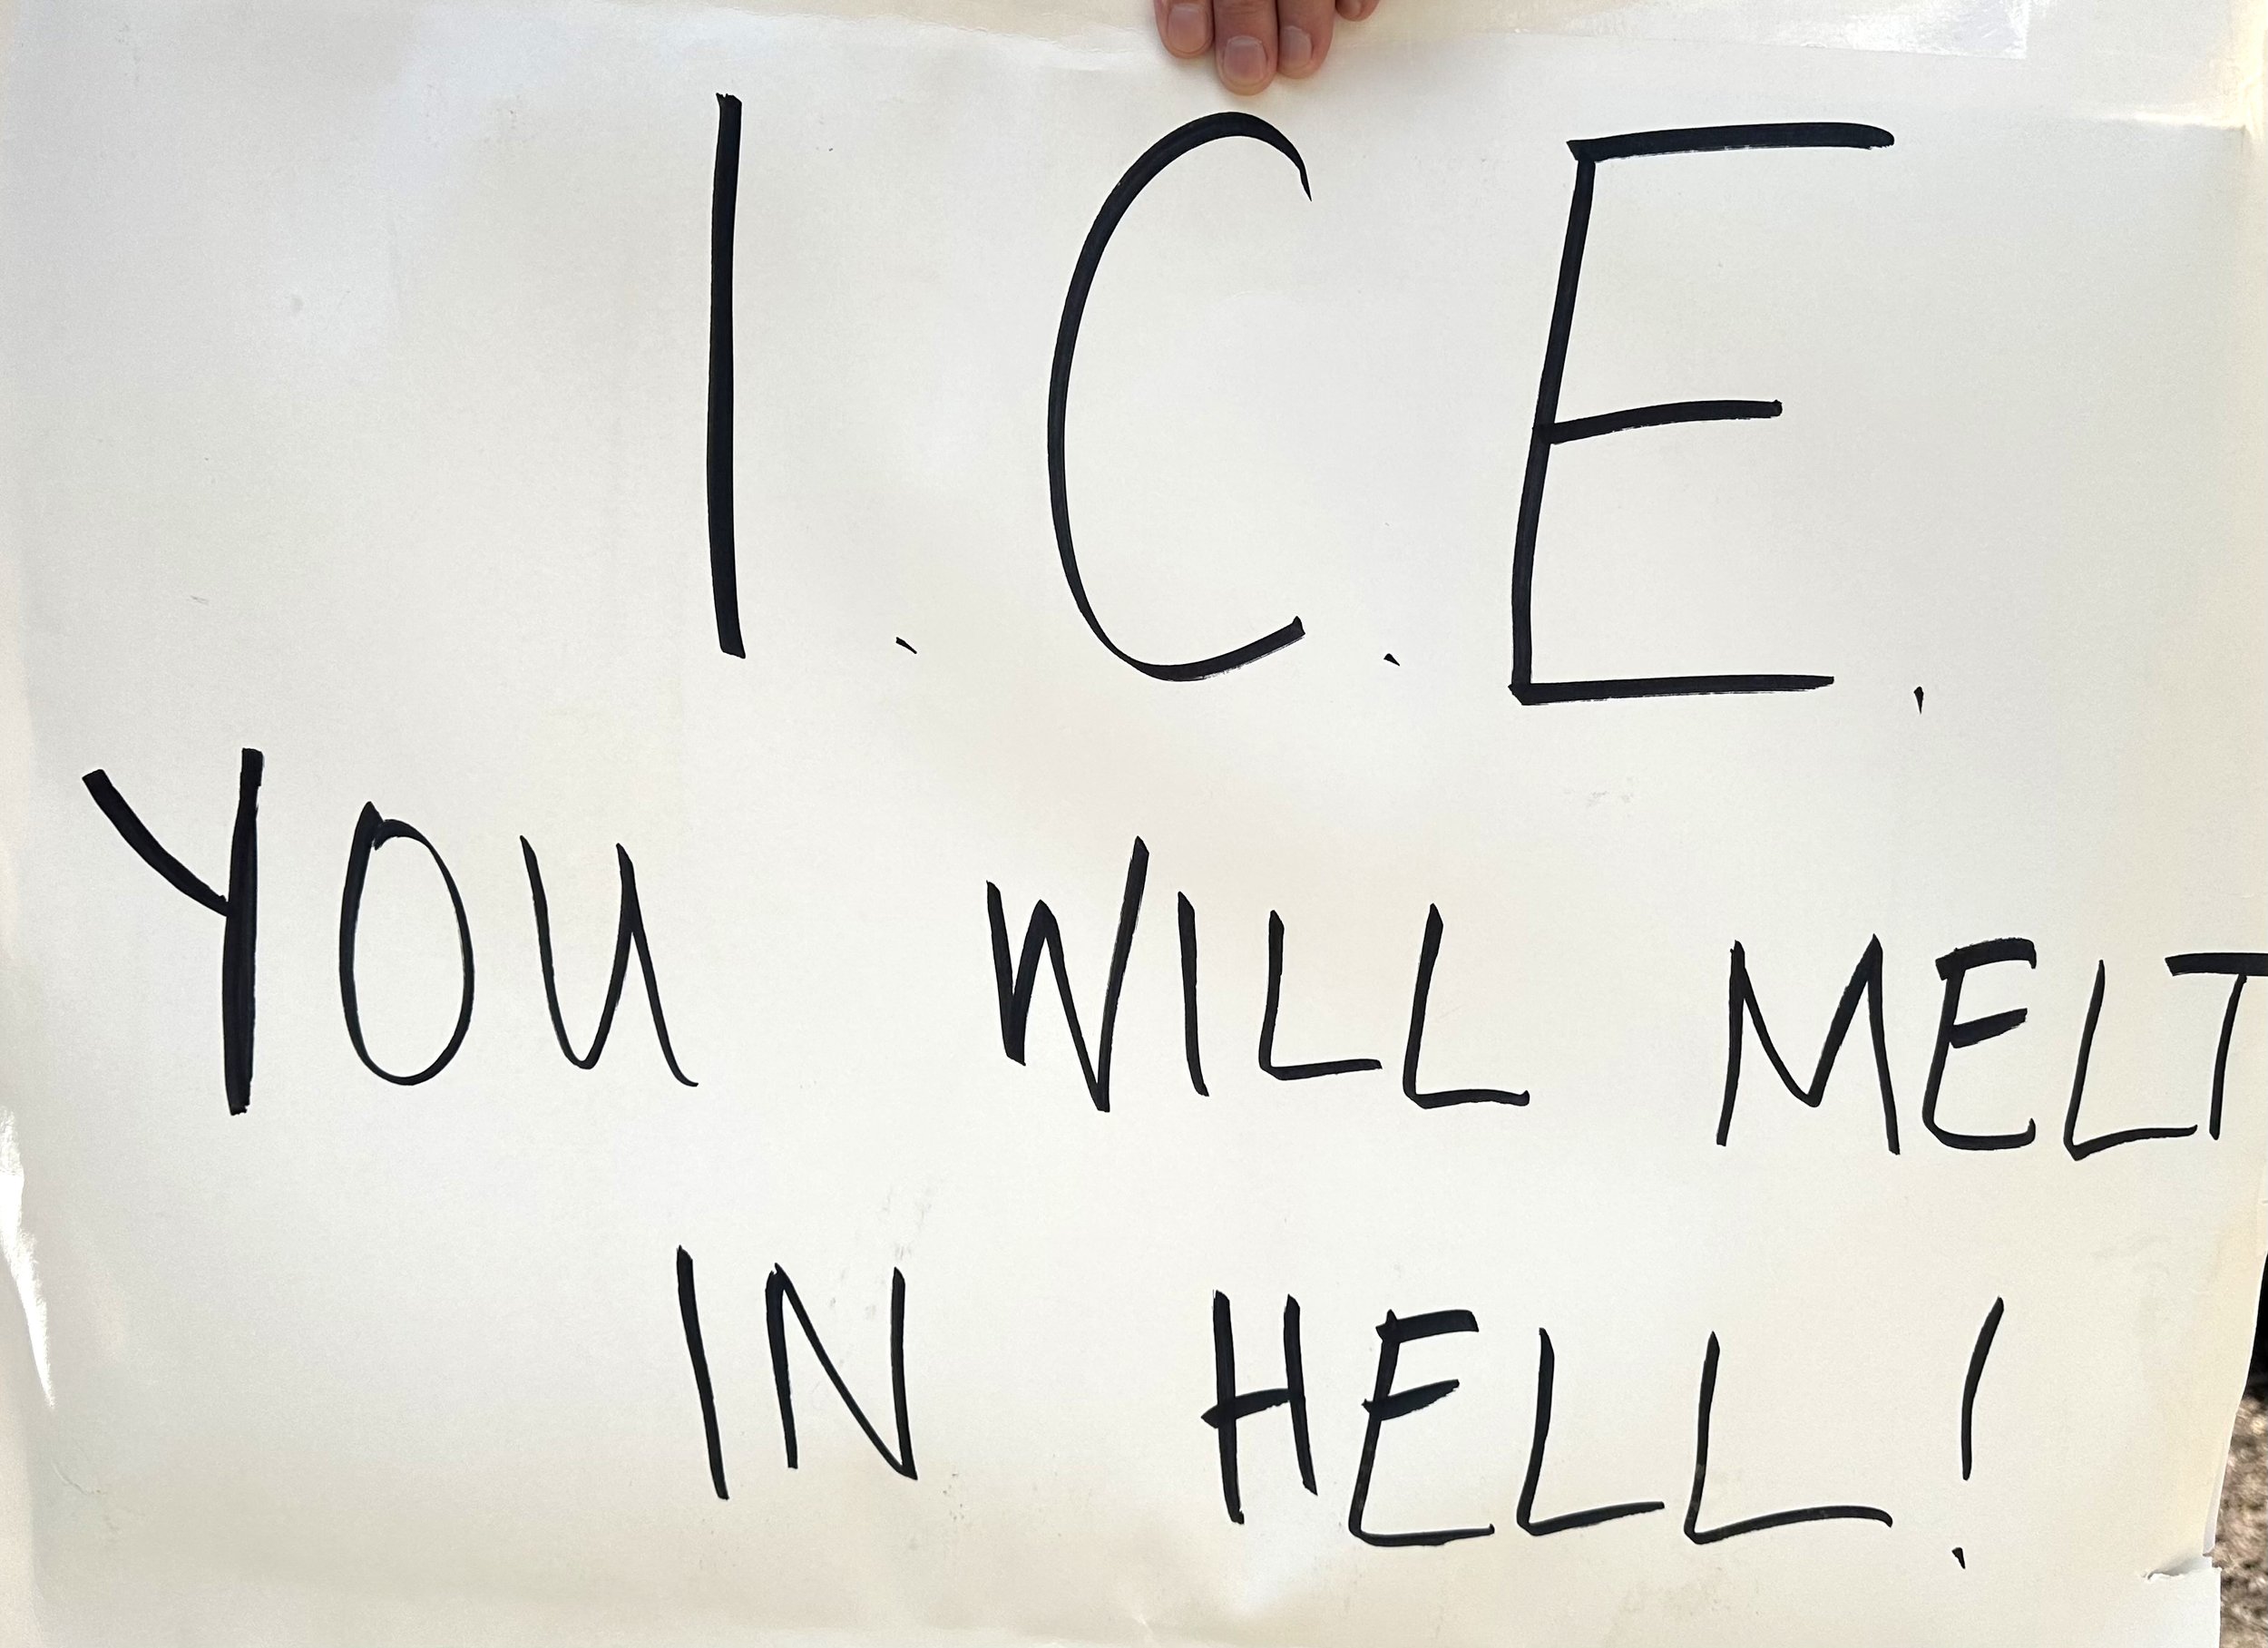 I.C.E.
YOU WILL MELT
IN HELL!